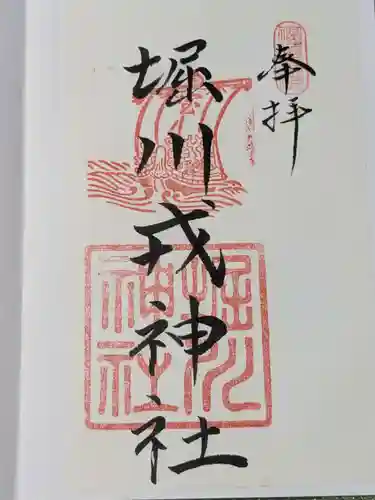 奉拝
堀川戎神社
堀川
神社